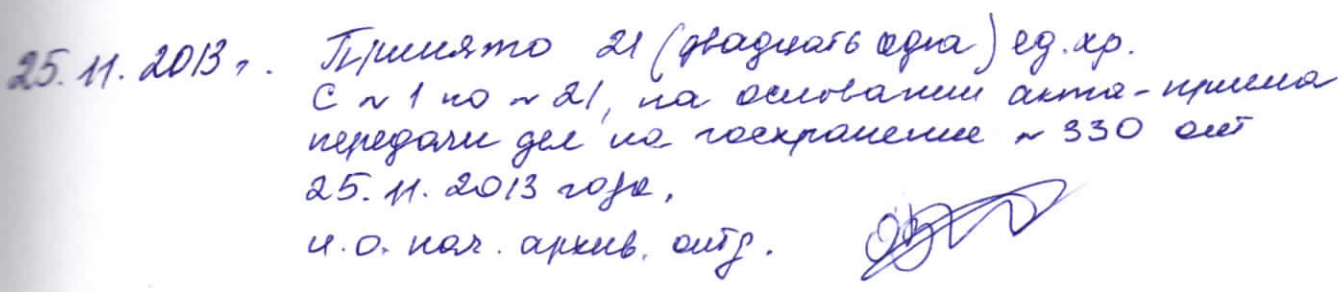 25.11.2013 г. Принято 21 (двадцать одна) ед.хр.
с № 1 по № 21, на основании акта-приема
передачи дел на госхранение № 330 от
25.11.2013 года,
и.о. нач. архив. отд.